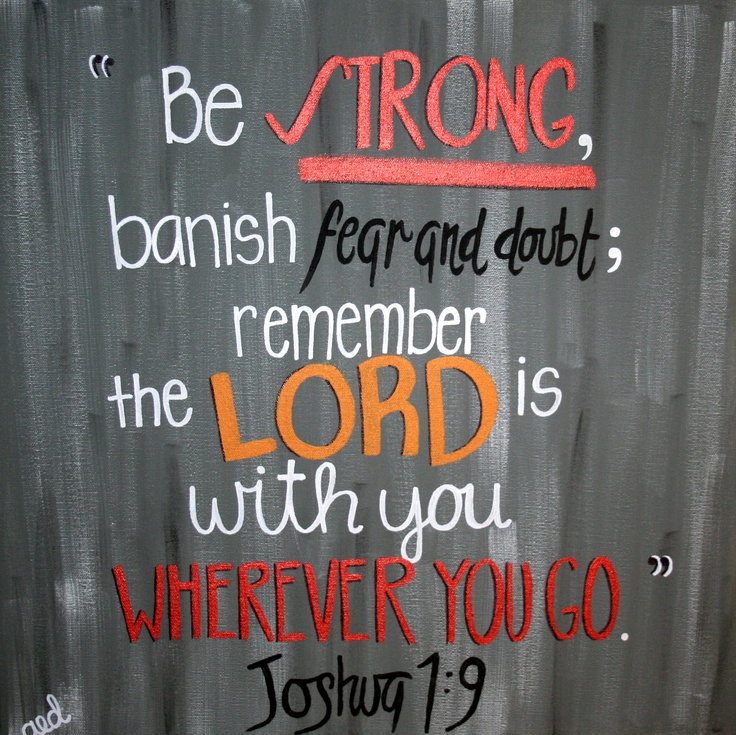 “ Be STRONG,
banish fear and doubt;
remember
the LORD is
with you
WHEREVER YOU GO. ”
Joshua 1:9
aed